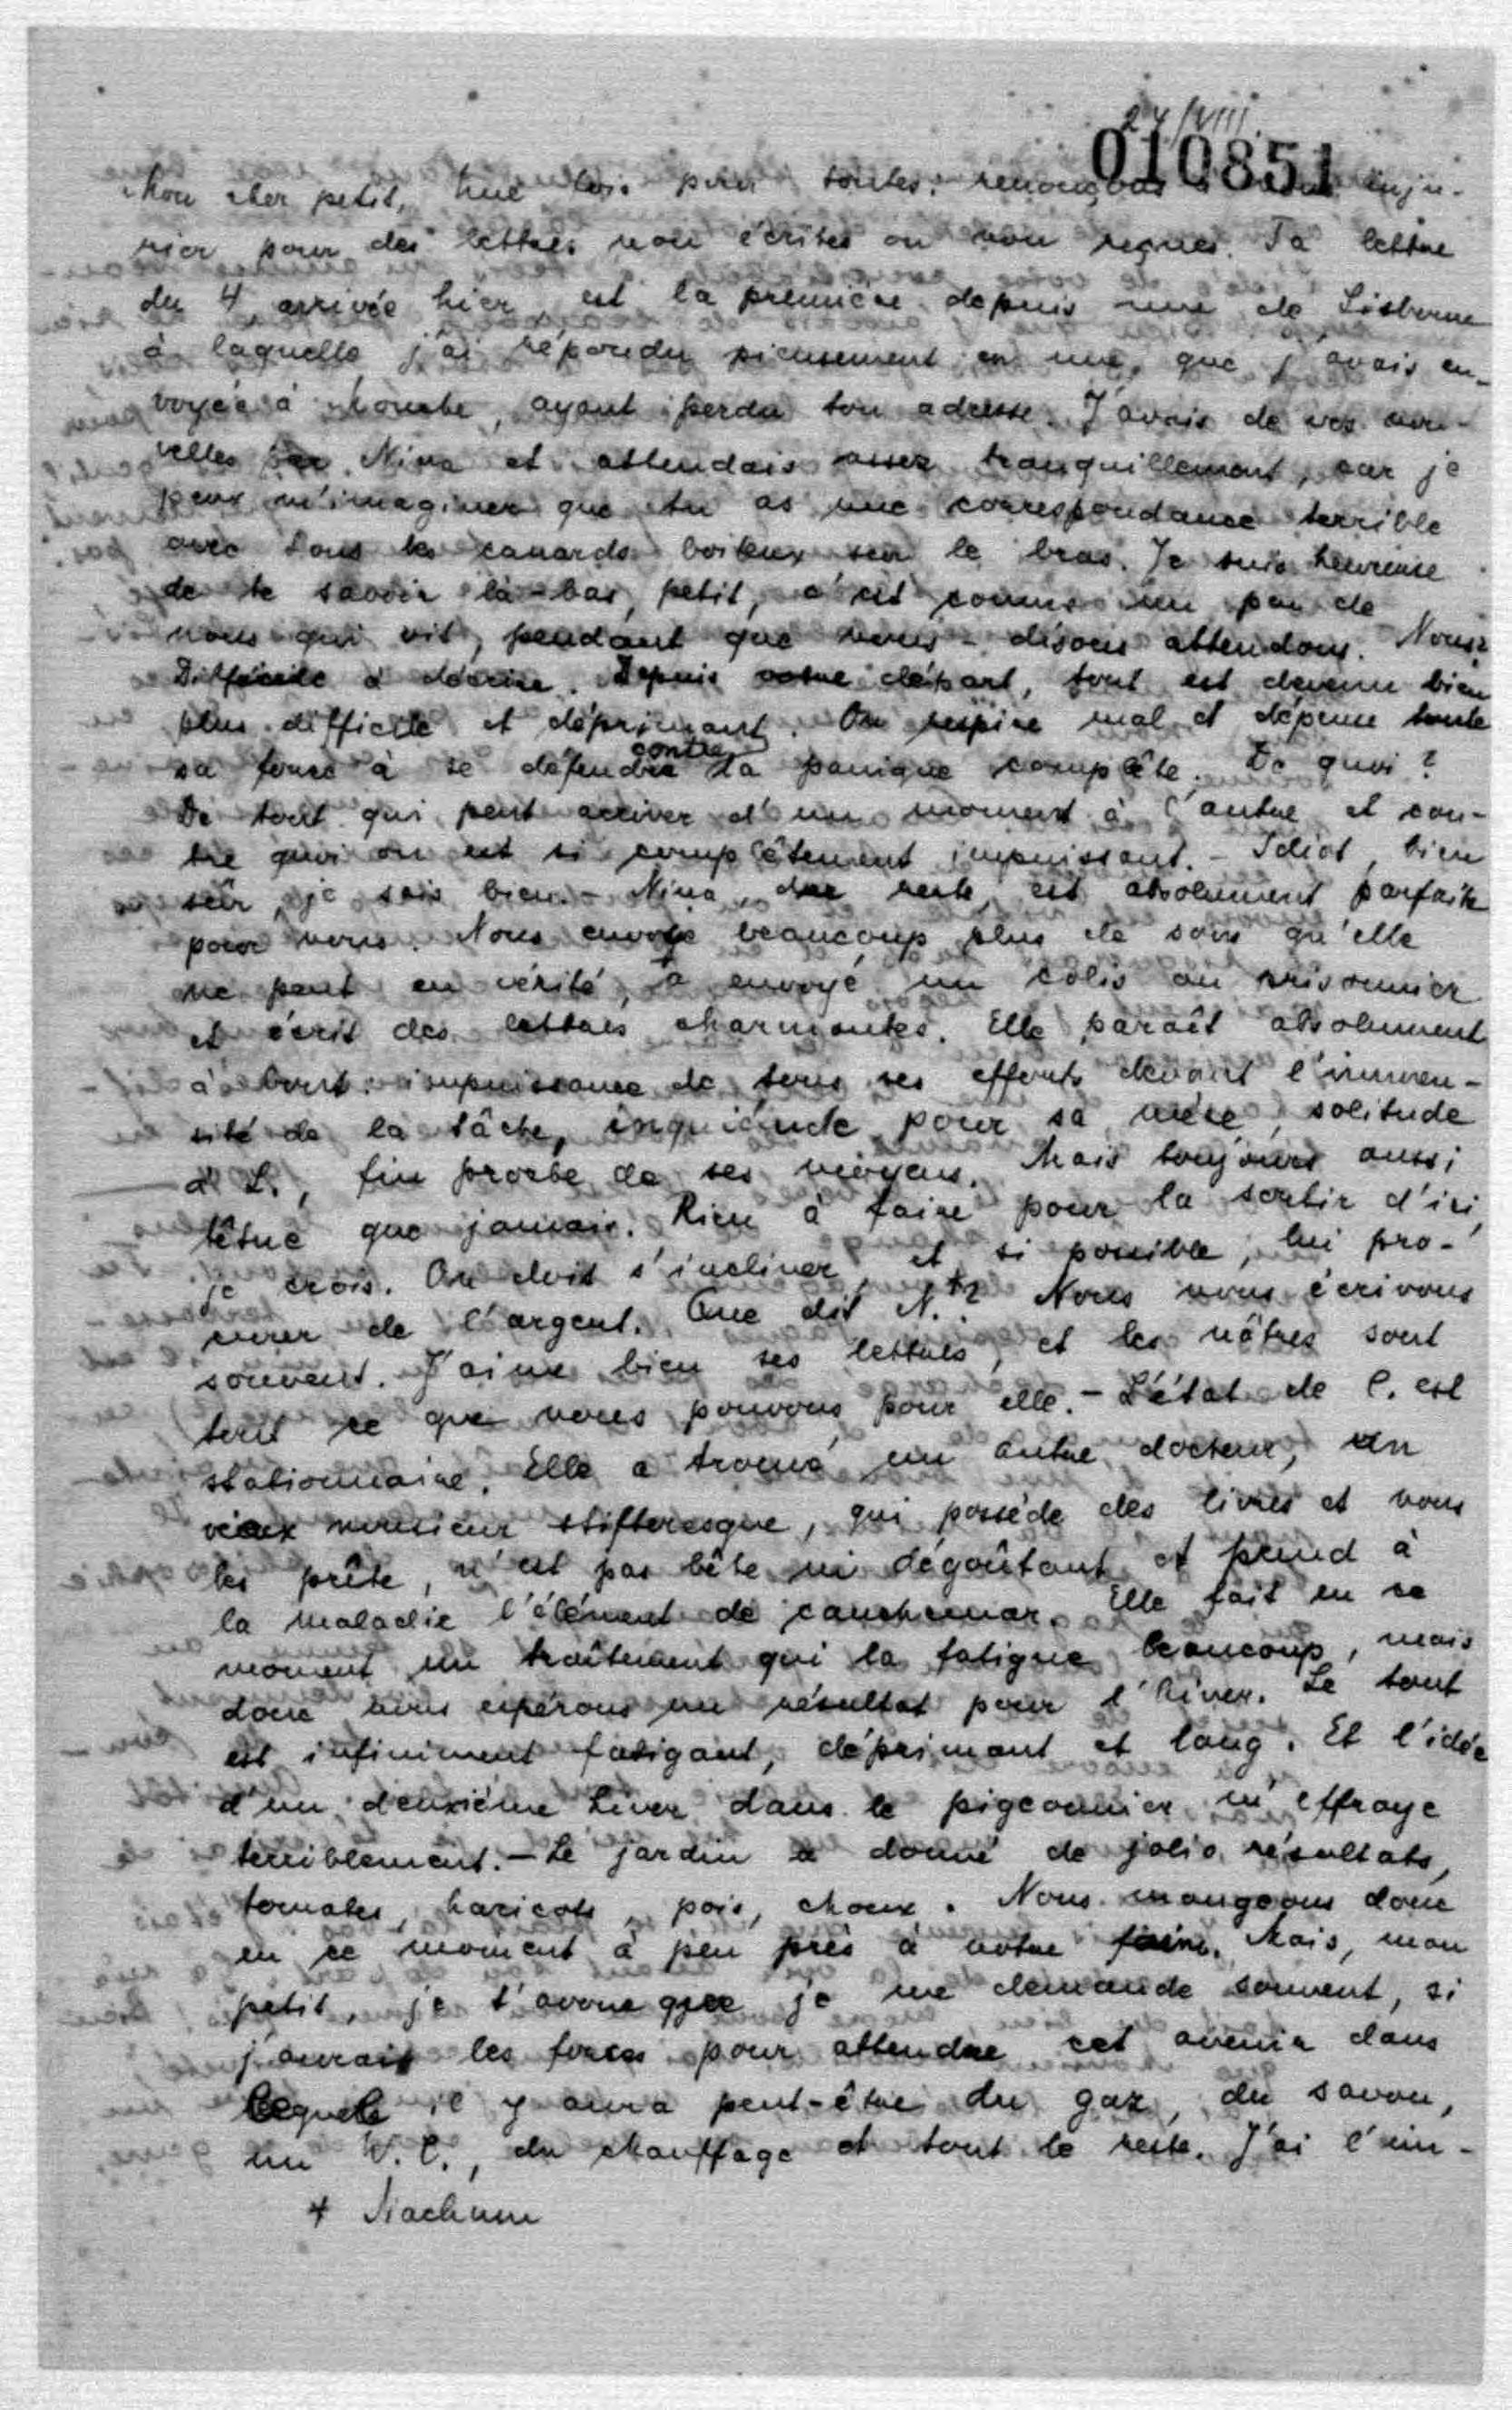 24/VIII.
010851
Mon cher petit, Une fois pour toutes: renonçons à inju-
rier pour des lettres non écrites ou non reçues. Ta lettre
du 4, arrivée hier, est la première depuis une de Lisbonne
à laquelle j'ai répondu pieusement et une, que j'avais en-
voyée à Mouche, ayant perdu ton adresse. J'avais de vos nou-
velles par Nina et attendais assez tranquillement, car je
peux m'imaginer que tu as une correspondance terrible
avec tous les canards boiteux sur le bras. Je suis heureuse
de te savoir là-bas, petit, c'est comme un peu de
nous qui vit, pendant que nous - disons attendons. Nous?
Difficile à décrire. Depuis votre départ, tout est devenu bien
plus difficile et déprimant. On respire mal et dépense toute
sa force à se défendre contre la panique complète. De quoi?
De tout qui peut arriver d'un moment à l'autre et con-
tre quoi on est si complètement impuissant. - Idiot, bien
sûr, je sais bien. - Nina, du reste, est absolument parfaite
pour nous. Nous envoye beaucoup plus de sous qu'elle
ne peut en vérité, a envoyé un colis au prisonnier
et écrit des lettres charmantes. Elle paraît absolument
à bout: impuissance de tous ses efforts devant l'immen-
sité de la tâche, inquiétude pour sa mère, solitude
à L., fin proche de ses moyens. Mais toujours aussi
têtue que jamais. Rien à faire pour la sortir d'ici,
je crois. On doit s'incliner et si possible, lui pro-
curer de l'argent. Que dit N.+? Nous nous écrivons
souvent. J'aime bien ses lettres, et les nôtres sont
tout ce que nous pouvons pour elle. - L'état de C. est
stationnaire. Elle a trouvé un autre docteur, un
vieux monsieur stifteresque, qui possède des livres et nous
les prête, n'est pas bête ni dégoûtant et prend à
la maladie l'élément de cauchemar. Elle fait en ce
moment un traîtement qui la fatigue beaucoup, mais
dont nous espérons un résultat pour l'hiver. Le tout
est infiniment fatigant, déprimant et long. Et l'idée
d'un deuxième hiver dans le pigeonnier m'effraye
terriblement. - Le jardin a donné de jolis résultats,
tomates, haricots, pois, choux. Nous mangeons donc
en ce moment à peu près à notre faim. Mais, mon
petit, je t'avoue que je me demande souvent, si
j'aurais les forces pour attendre cet avenir dans
lequel il y aura peut-être du gaz, du savon,
un W.C., du chauffage et tout le reste. J'ai l'im-
+ Nachum